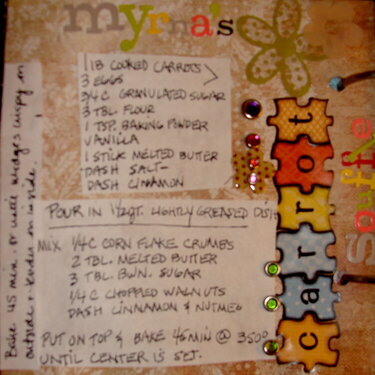 myrna's
1 lB COOKED CARROTS
3 EGGS
3/4 C GRANULATED SUGAR
3 TBL. FLOUR
1 TSP. BAKING POWDER
VANILLA
1 STICK MELTED BUTTER
DASH SALT-
DASH CINAMON
POUR IN 1 1/2QT. LIGHTLY GREASED DISH
MIX 1/4 C CORN FLAKE CRUMBS
2 TBL. MELTED BUTTER
3 TBL. BWN. SUGAR
1/4 C CHOPPED WALNUTS
DASH CINNAMON & NUTMEG
PUT ON TOP & BAKE 45 MIN @ 350°
UNTIL CENTER IS SET.
Bake 45 min. or until wedges crispy on
outside & tender on inside.
carrot
souffle